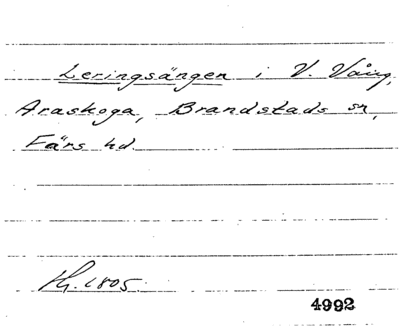 Leringsängen i V. Vång,
Araskoga, Brandstads sn,
Färs hd.
1805.
4992